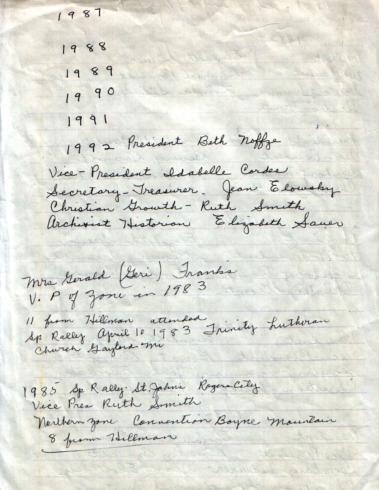 1987
1988
1989
1990
1991
1992 President Beth Noffze
Vice-President Idabelle Cordes
Secretary-Treasurer. Jean Elowsky
Christian Growth - Ruth Smith
Archivist Historian Elizabeth Sauer
Mrs Gerald (Geri) Franks
V. P of Zone in 1983
11 from Hillman attended
Sp Rally April 10 1983 Trinity Lutheran
Church Gaylord Mi
1985 Sp Rally. St. Johns Rogers City
Vice Pres Ruth Smith
Northern Zone Convention Boyne Mountain
8 from Hillman